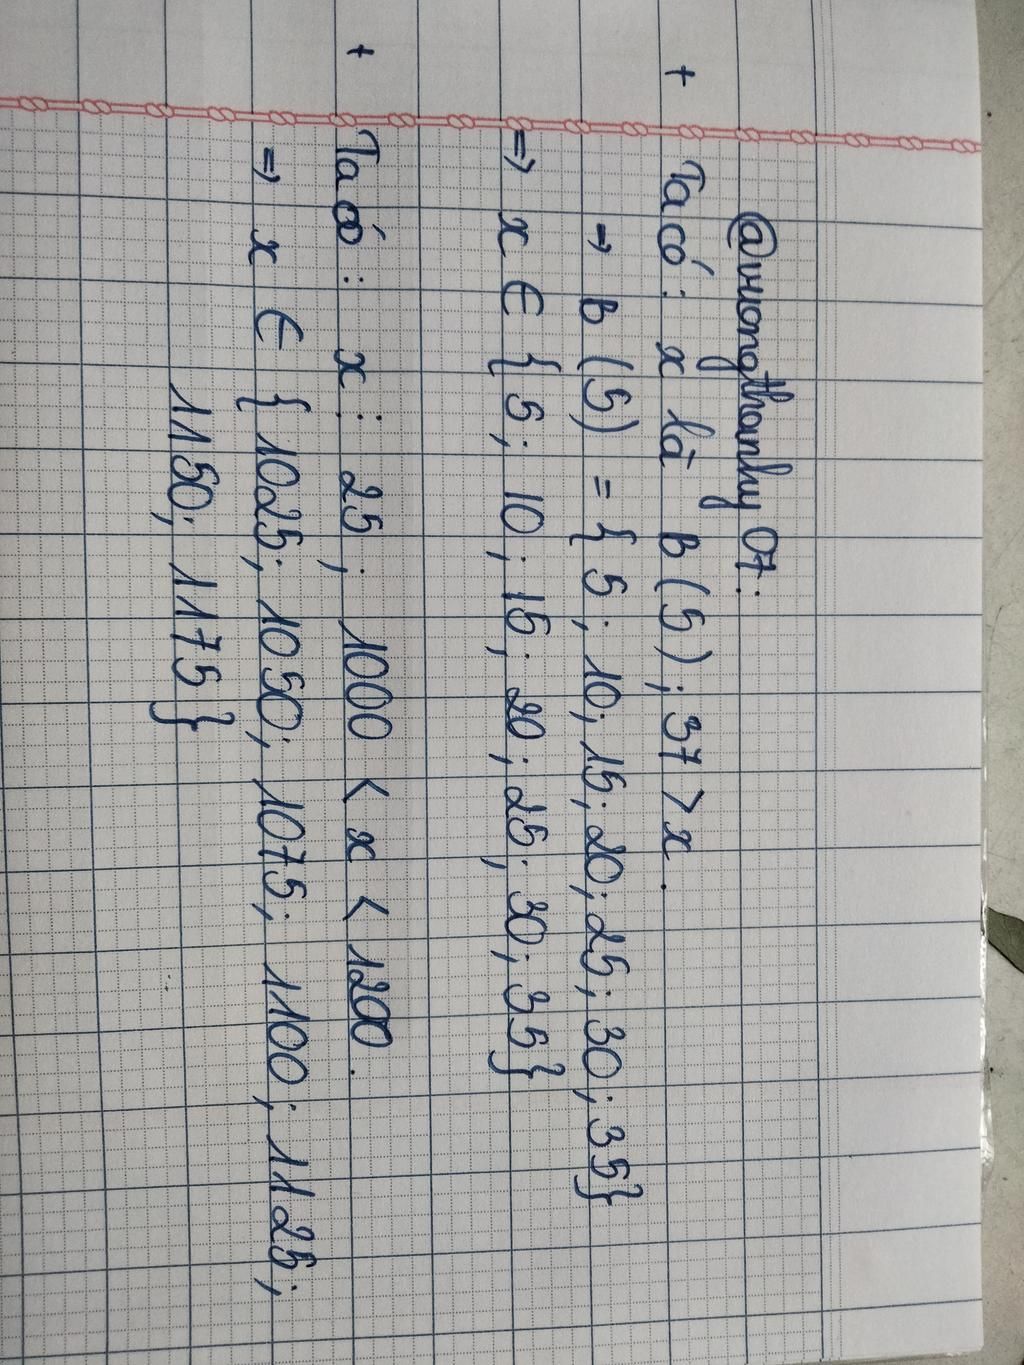 @vuongthanhuy 07:
+ Ta có : x là B (5) ; 37 > x.
⇒ B (5) = { 5 ; 10; 15; 20; 25; 30; 35}
⇒ x ∈ { 5; 10; 15; 20; 25; 30; 35}
+ Ta có : x ⋮ 25 ; 1000 < x < 1200.
⇒ x ∈ { 1025; 1050; 1075; 1100; 1125;
1150; 1175}